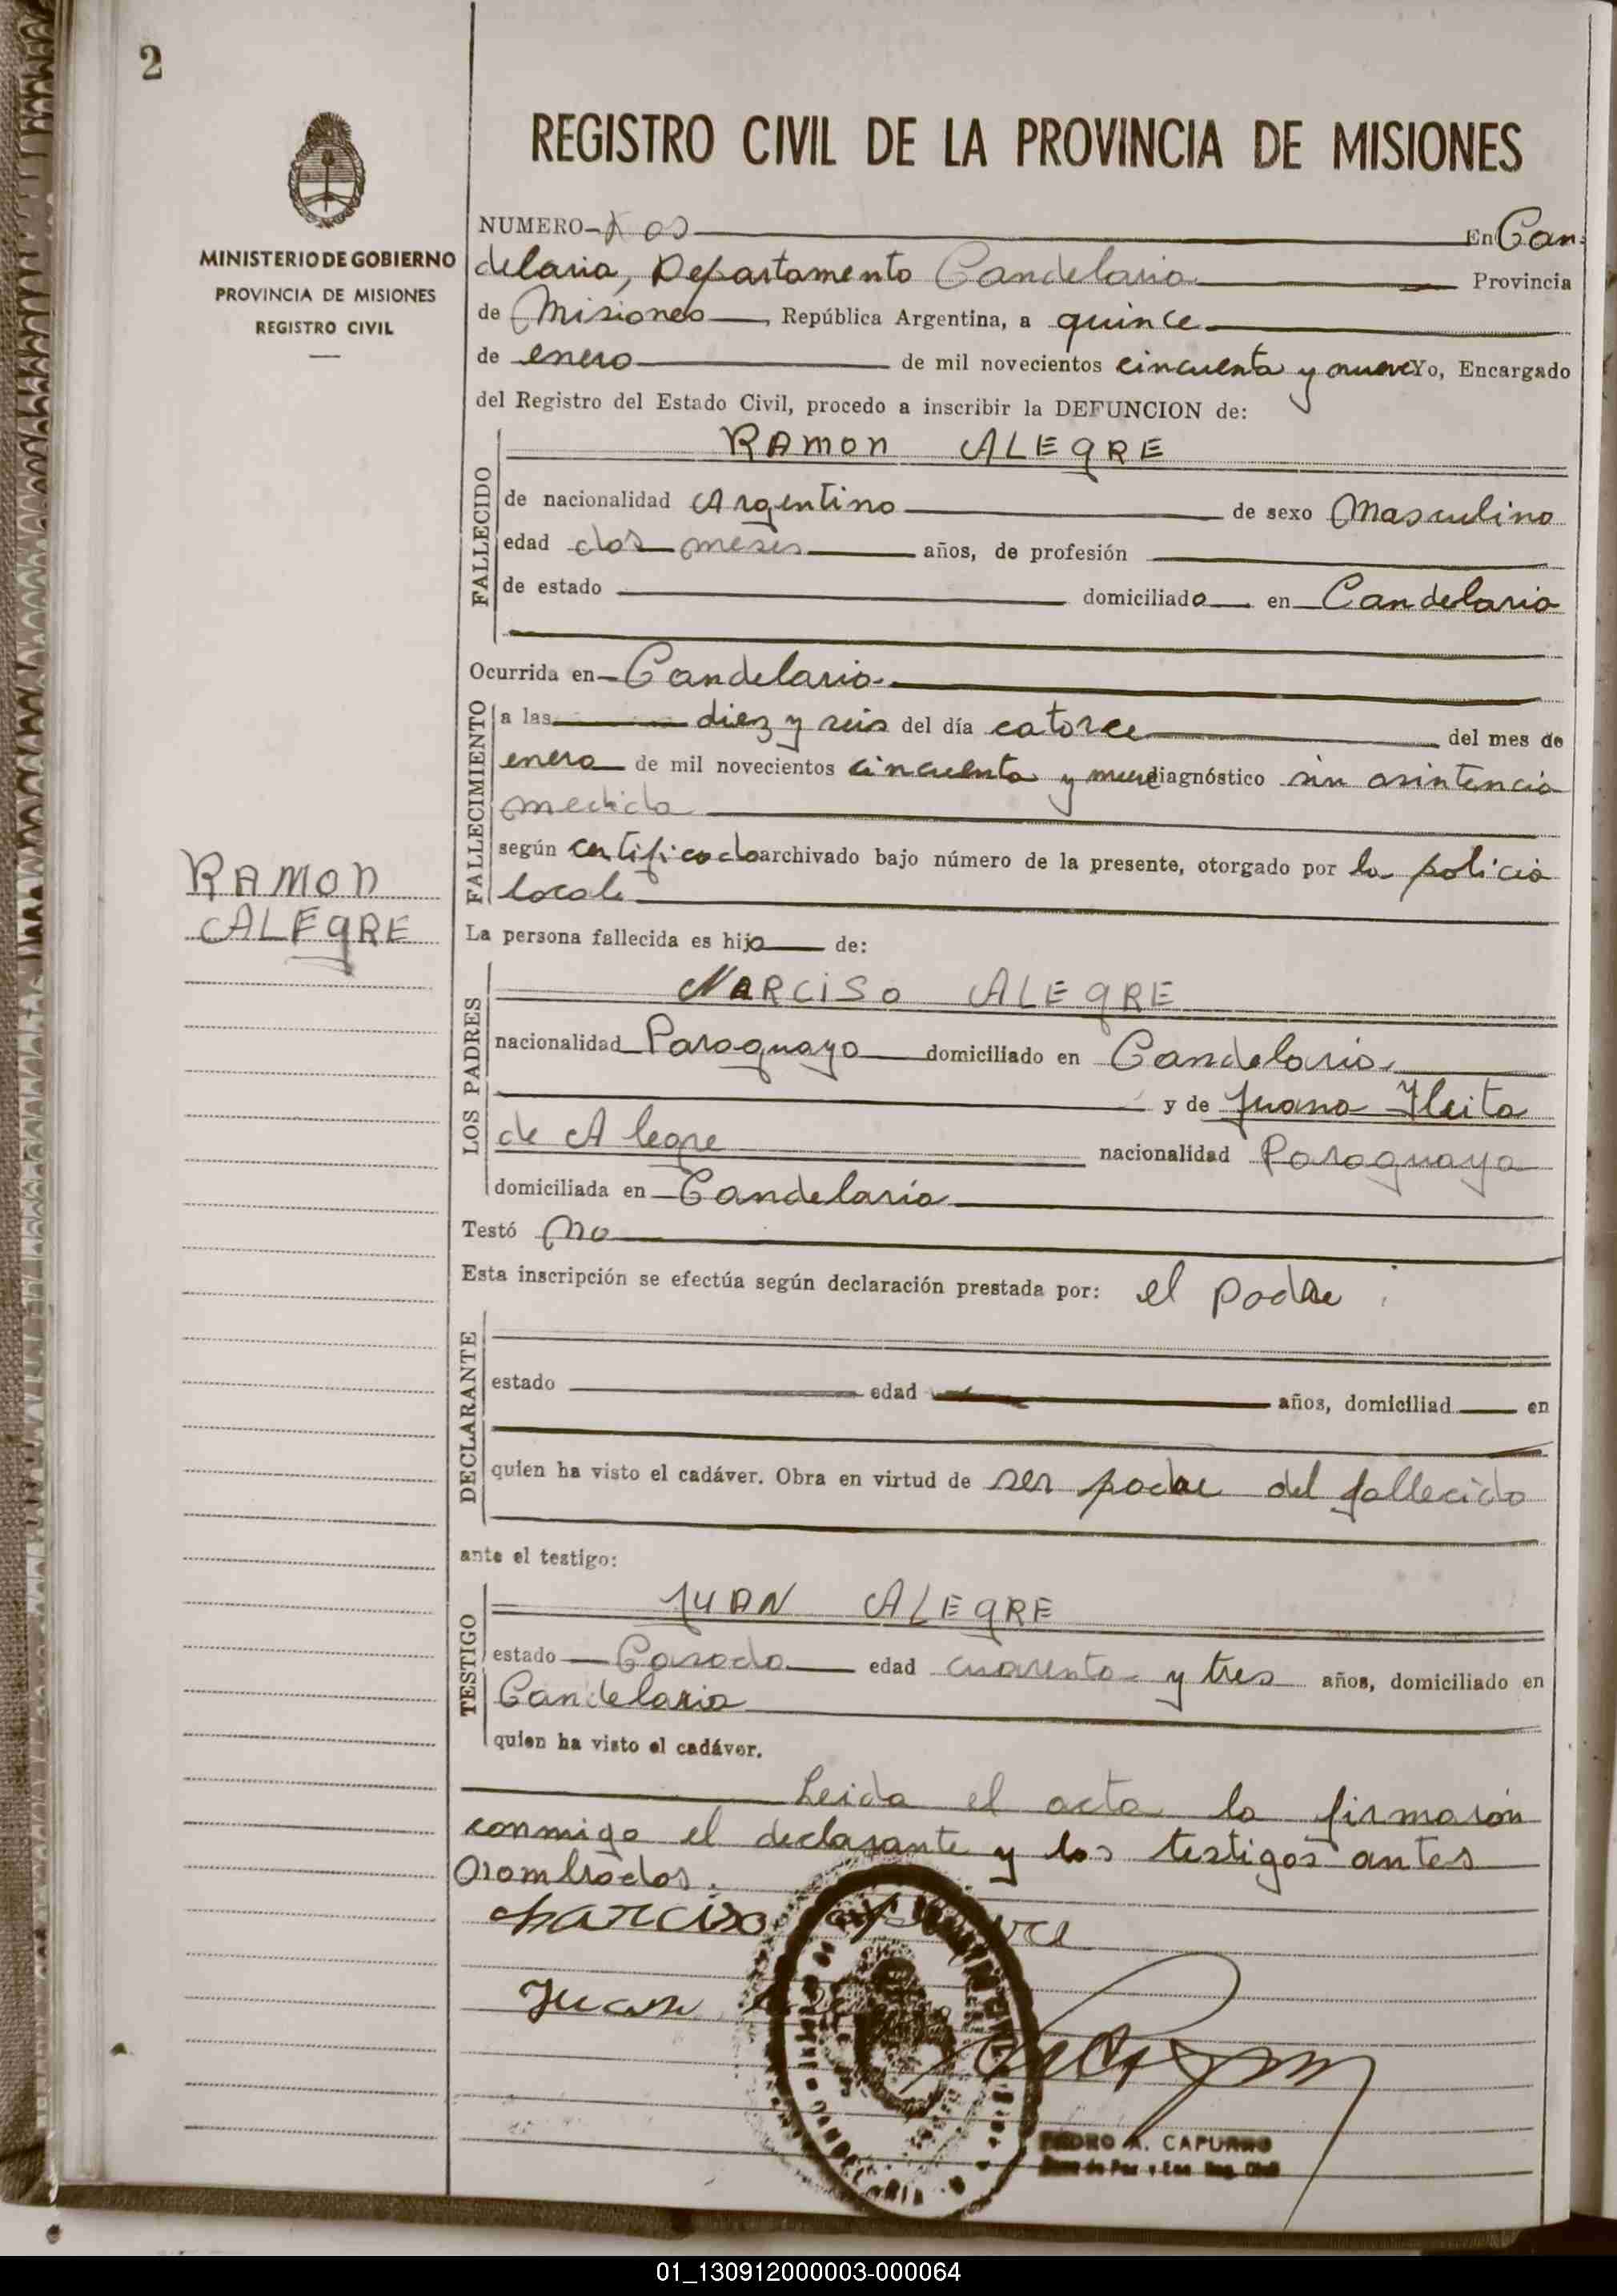 2
REGISTRO CIVIL DE LA PROVINCIA DE MISIONES
MINISTERIO DE GOBIERNO
PROVINCIA DE MISIONES
REGISTRO CIVIL
NUMERO Dos En Can-
delaria, Departamento Candelaria Provincia
de Misiones, República Argentina, a quince
de enero de mil novecientos cincuenta y nueve Yo, Encargado
del Registro del Estado Civil, procedo a inscribir la DEFUNCION de:
RAMON ALEGRE
FALLECIDO
de nacionalidad Argentino de sexo Masculino
edad dos meses años, de profesión
de estado domiciliado en Candelaria
Ocurrida en Candelaria
FALLECIMIENTO
a las diez y seis del día catorce del mes de
enero de mil novecientos cincuenta y nueve diagnóstico sin asistencia
medica
según certificado archivado bajo número de la presente, otorgado por la policia
local
RAMON
ALEGRE
La persona fallecida es hijo de:
NARCISO ALEGRE
LOS PADRES
nacionalidad Paraguayo domiciliado en Candelaria
y de Juana Ileita
de Alegre nacionalidad Paraguaya
domiciliada en Candelaria
Testó no
Esta inscripción se efectúa según declaración prestada por: el padre
DECLARANTE
estado edad años, domiciliad en
quien ha visto el cadáver. Obra en virtud de ser padre del fallecido
ante el testigo:
JUAN ALEGRE
TESTIGO
estado Casado edad cuarenta y tres años, domiciliado en
Candelaria
quien ha visto el cadáver.
Leida el acta la firmaron
conmigo el declarante y los testigos antes
nombrados.
Narciso
Juan
PEDRO A. CAPURRO
Juez de Paz y Enc. Reg. Civil
01_130912000003-000064